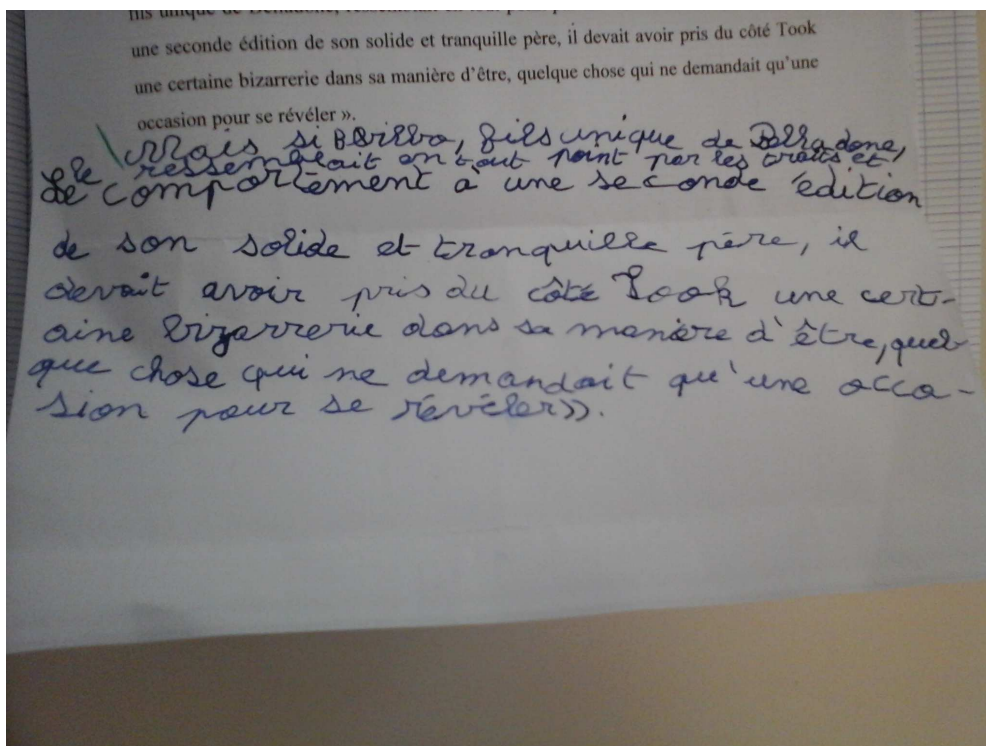 une seconde édition de son solide et tranquille père, il devait avoir pris du côté Took
une certaine bizarrerie dans sa manière d'être, quelque chose qui ne demandait qu'une
occasion pour se révéler ».
Mais si Bilbo, fils unique de Belladone,
le ressemblait en tout point par les traits et
le comportement à une seconde édition
de son solide et tranquille père, il
devait avoir pris du côté Took une cert-
aine bizarrerie dans sa manière d'être, quel-
que chose qui ne demandait qu'une occa-
sion pour se révéler».